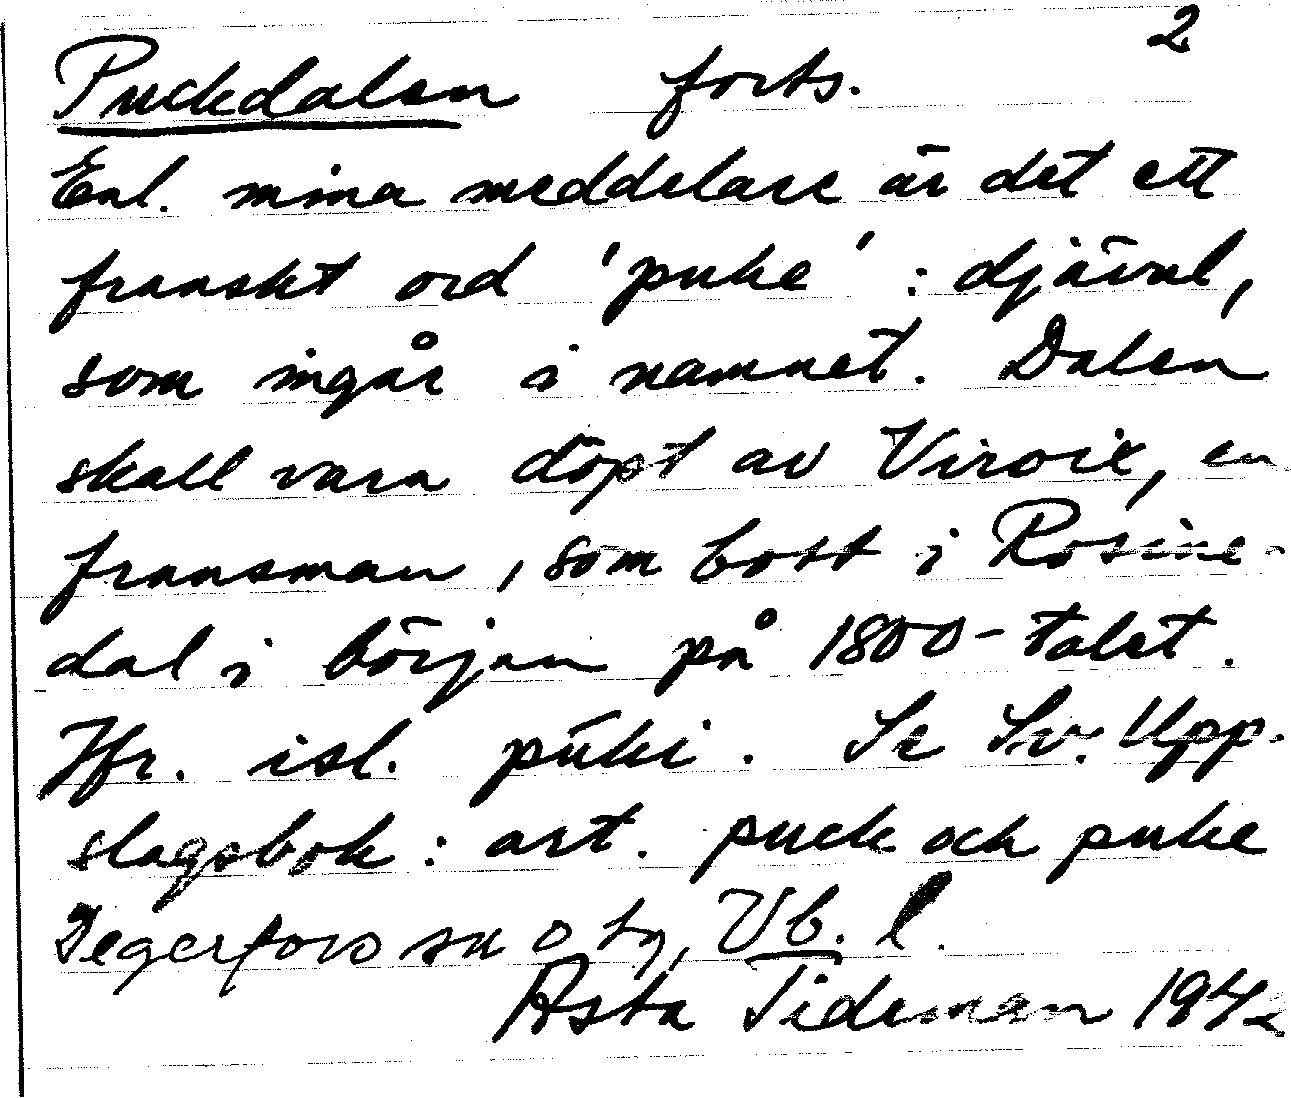 2
Puckdalen forts.
Enl. mina meddelare är det ett
franskt ord 'puke' : djävul,
som ingår i namnet. Dalen
skall vara döpt av Viroix, en
fransman, som bott i Rosine-
dal i början på 1800-talet.
Jfr. isl. púki. Se Sv. Upp-
slagsbok: art. puck och puke
Degerfors sn o tg, Vb. l.
Asta Tideman 1942